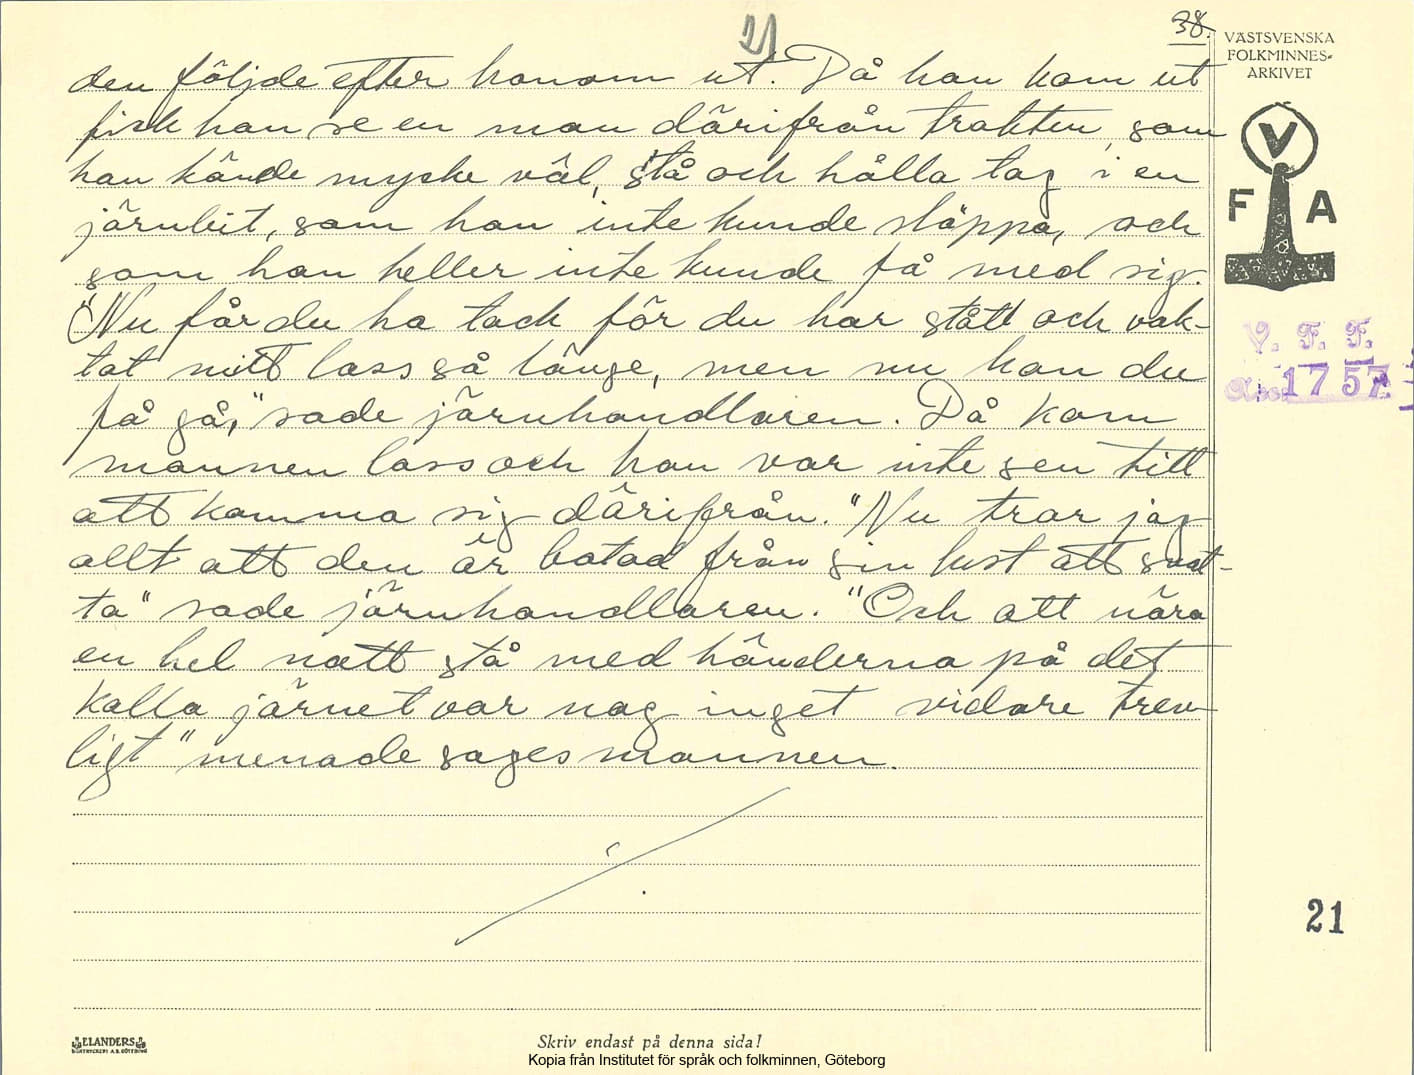 21
38.
VÄSTSVENSKA
FOLKMINNES-
ARKIVET
V
F A
V. F. F.
Acc. 1757
den följde efter honom ut. Då han kom ut
fick han se en man därifrån trakten, som
han kände mycke väl, stå och hålla tag i en
järnbit, som han inte kunde släppa, och
som han heller inte kunde få med sig.
"Nu får du ha tack för du har stått och vak-
tat mitt lass så länge, men nu kan du
få gå," sade järnhandlaren. Då kom
mannen lass och han var inte sen till
att komma sig därifrån. "Nu tror jag
allt att den är botad från sin lust att snat-
ta" sade järnhandlaren. "Och att nära
en hel natt stå med händerna på det
kalla järnet var nog inget vidare trev-
ligt" menade sagesmannen.
21
ELANDERS
BOKTRYCKERI A.B. GÖTEBORG
Skriv endast på denna sida!
Kopia från Institutet för språk och folkminnen, Göteborg